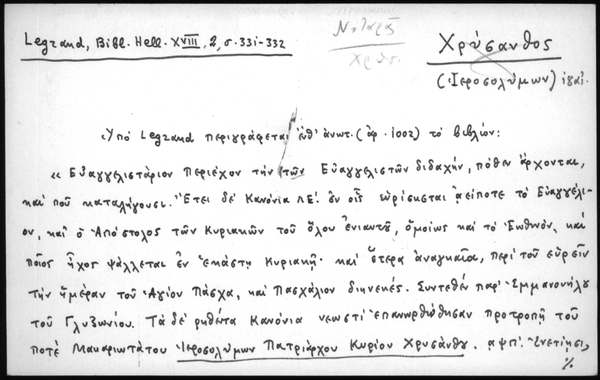 Legrand, Bibl. Hell. XVIII, 2, σ. 331-332
Νοταρᾶ
Χρύσ.
Χρύσανθος
(Ἱεροσολύμων)
Ὑπὸ Legrand περιγράφεται ἐνθ' ἀνωτ. (ἀρ. 1002) τὸ βιβλίον:
« Εὐαγγελιστάριον περιέχον τὴν τῶν Εὐαγγελιστῶν διδαχήν, πόθεν ἄρχονται,
καὶ ποῦ καταλήγουσι. Ἔτει δὲ Κανόνια ΛΕ! ἐν οἷς εὑρίσκεται ἀείποτε τὸ Εὐαγγέλι-
ον, καὶ ὁ Ἀπόστολος τῶν Κυριακῶν τοῦ ὅλου ἐνιαυτοῦ, ὁμοίως καὶ τὸ Ἑωθινόν, καὶ
ποῖος ἦχος ψάλλεται ἐν ἑκάστῃ Κυριακῇ· καὶ ἕτερα ἀναγκαῖα, περὶ τοῦ εὑρεῖν
τὴν ἡμέραν τοῦ Ἁγίου Πάσχα, καὶ Πασχάλιον διηνεκές. Συντεθὲν παρ' Ἐμμανουήλου
τοῦ Γλυζωνίου. Τὰ δὲ ῥηθέντα Κανόνια νεωστὶ ἐπανωρθώθησαν προτροπῇ τοῦ
ποτὲ Μακαριωτάτου Ἱεροσολύμων Πατριάρχου Κυρίου Χρυσάνθου. αψπ'. Ἐνετίησι,
%